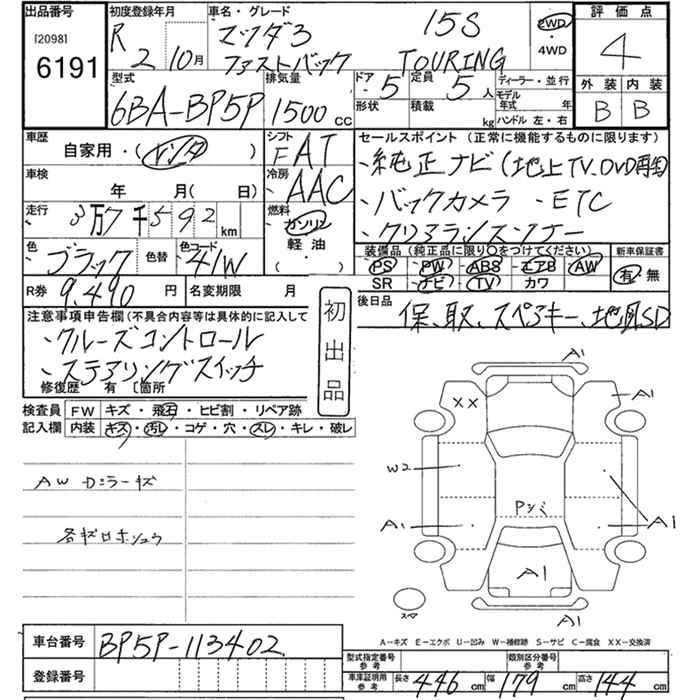 出品番号 初度登録年月 車名・グレード 評価点
[2098] R マツダ3 15S 2WD
6191 2 10月 ファストバック TOURING ・4WD 4
型式 排気量 ドア 5 定員 5人 ディーラー・並行 外装 内装
6BA-BP5P 1500 CC 形状 積載 kg モデル年式 年 B B
ハンドル 左・右
車歴 シフト セールスポイント (正常に機能するものに限ります)
自家用・(レンタ) FAT ・純正ナビ(地上TV、DVD再生)
車検 冷房 ・バックカメラ・ETC
年 月( 日) AAC ・クリアランスソナー
走行 燃料
3万7千592km ガソリン
軽油
・( )
色 色替 色コード 装備品 (純正品に限り○をつけてください) 新車保証書
ブラック 41W PS・PW・ABS・エアB・AW 有・無
SR・ナビ・TV・カワ
R券 9,490円 名変期限 月
後日品
注意事項申告欄(不具合内容等は具体的に記入して 初出品 保、取、スペアキー、地図SD
・クルーズコントロール
・ステアリングスイッチ
修復歴 有 〔箇所
検査員 FW キズ・飛石・ヒビ割・リペア跡
記入欄 内装 キズ・汚レ・コゲ・穴・スレ・キレ・破レ
A1
XX A1
W2
AW Dミラーキズ
Pシミ
各キロホシュウ A1 A1
A1
スマ
A1
A-キズ E-エクボ U-凹み W-補修跡 S-サビ C-腐食 XX-交換済
車台番号 BP5P-113402
型式指定番号 参考 類別区分番号 参考
登録番号 車庫証明用 参考 長さ 446cm 幅 179cm 高さ 144cm